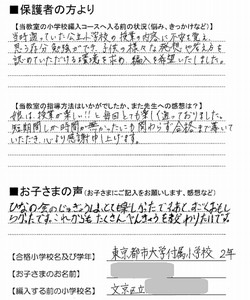 ■保護者の方より
【当教室の小学校編入コースへ入る前の状況(悩み、きっかけなど)】
当時通っていた公立小学校の授業の内容に不安を覚え、
思う存分勉強ができ、子供の様々な発想や考え方を
認めていただける環境を求め、編入を希望しました。
【当教室の指導方法はいかがでしたか、また先生への感想は?】
娘は、授業が楽しい!!と毎回とても楽しく通っておりました。
短期間しか時間が無かったにも関わらず合格まで導いて
いただき、心より感謝申し上げます。
■お子さまの声(お子さまにご記入をお願いします、感想など)
ひなめ会のじっしゅうは、とても楽しかったです。
これからもたくさん
【合格小学校名及び学年】 東京都市大学付属小学校 2年
【お子さまのお名前】
【編入する前の小学校名】 文京区立